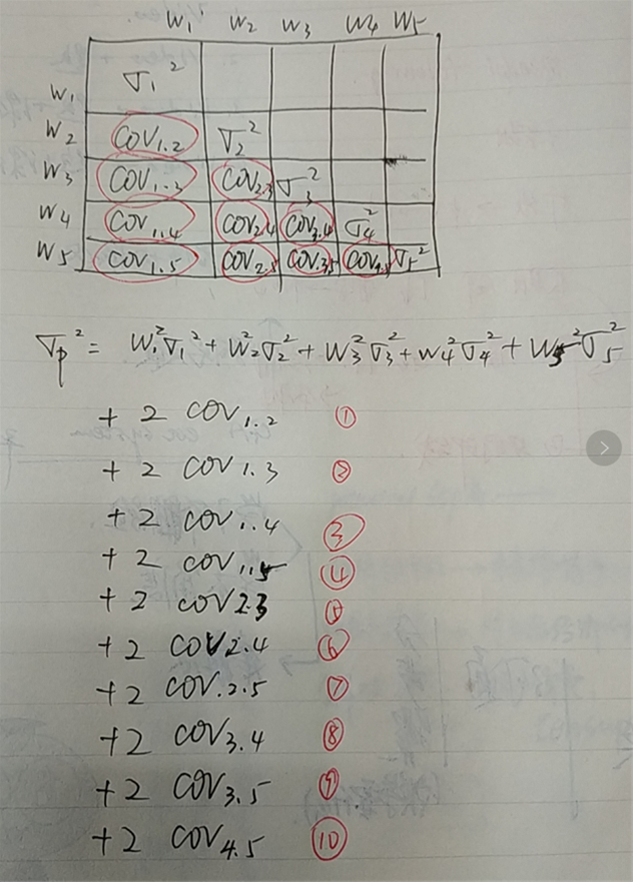 W₁ W₂ W₃ W₄ W₅
W₁ σ₁²
W₂ COV₁.₂ σ₂²
W₃ COV₁.₃ COV₂.₃ σ₃²
W₄ COV₁.₄ COV₂.₄ COV₃.₄ σ₄²
W₅ COV₁.₅ COV₂.₅ COV₃.₅ COV₄.₅ σ₅²
σp² = W₁²σ₁² + W₂²σ₂² + W₃²σ₃² + W₄²σ₄² + W₅²σ₅²
+ 2 COV₁.₂ ①
+ 2 COV₁.₃ ②
+ 2 COV₁.₄ ③
+ 2 COV₁.₅ ④
+ 2 COV₂.₃ ⑤
+ 2 COV₂.₄ ⑥
+ 2 COV₂.₅ ⑦
+ 2 COV₃.₄ ⑧
+ 2 COV₃.₅ ⑨
+ 2 COV₄.₅ ⑩